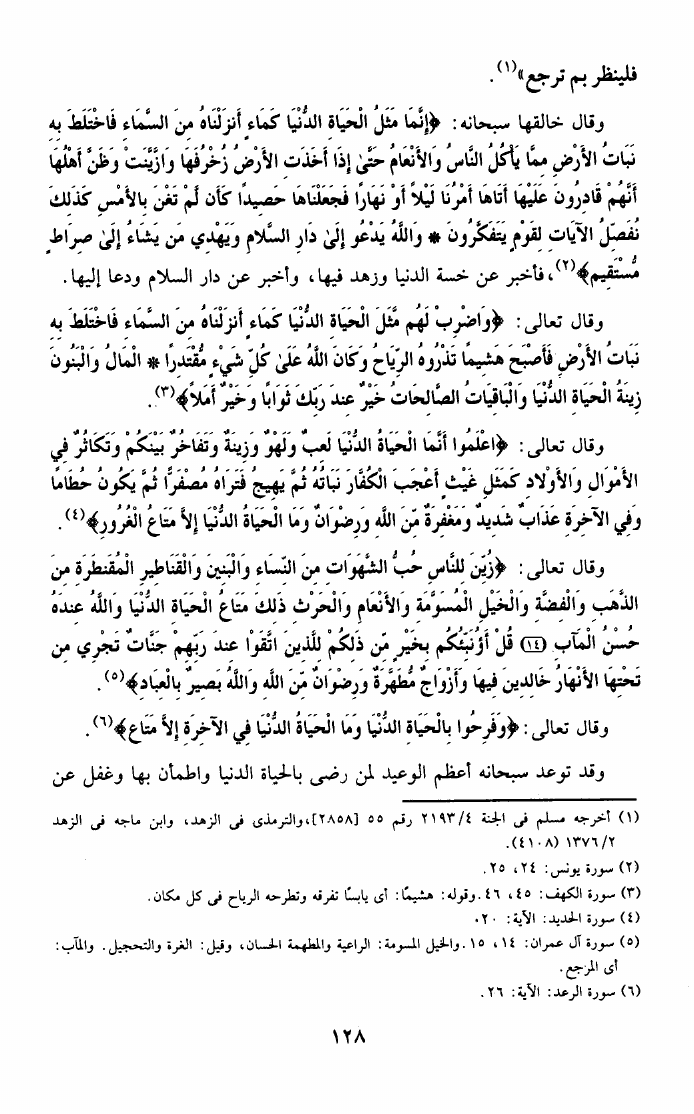 فلينظر بم ترجع»(١).
وقال خالقها سبحانه: ﴿إِنَّمَا مَثَلُ الْحَيَاةِ الدُّنْيَا كَمَاءٍ أَنزَلْنَاهُ مِنَ السَّمَاءِ فَاخْتَلَطَ بِهِ
نَبَاتُ الأَرْضِ مِمَّا يَأْكُلُ النَّاسُ وَالأَنْعَامُ حَتَّىٰ إِذَا أَخَذَتِ الأَرْضُ زُخْرُفَهَا وَازَّيَّنَتْ وَظَنَّ أَهْلُهَا
أَنَّهُمْ قَادِرُونَ عَلَيْهَا أَتَاهَا أَمْرُنَا لَيْلاً أَوْ نَهَارًا فَجَعَلْنَاهَا حَصِيدًا كَأَن لَّمْ تَغْنَ بِالأَمْسِ كَذَلِكَ
نُفَصِّلُ الآيَاتِ لِقَوْمٍ يَتَفَكَّرُونَ * وَاللَّهُ يَدْعُو إِلَىٰ دَارِ السَّلامِ وَيَهْدِي مَن يَشَاءُ إِلَىٰ صِرَاطٍ
مُّسْتَقِيمٍ﴾(٢)، فأخبر عن خسة الدنيا وزهد فيها، وأخبر عن دار السلام ودعا إليها.
وقال تعالى: ﴿وَاضْرِبْ لَهُم مَّثَلَ الْحَيَاةِ الدُّنْيَا كَمَاءٍ أَنزَلْنَاهُ مِنَ السَّمَاءِ فَاخْتَلَطَ بِهِ
نَبَاتُ الأَرْضِ فَأَصْبَحَ هَشِيمًا تَذْرُوهُ الرِّيَاحُ وَكَانَ اللَّهُ عَلَىٰ كُلِّ شَيْءٍ مُّقْتَدِرًا * الْمَالُ وَالْبَنُونَ
زِينَةُ الْحَيَاةِ الدُّنْيَا وَالْبَاقِيَاتُ الصَّالِحَاتُ خَيْرٌ عِندَ رَبِّكَ ثَوَابًا وَخَيْرٌ أَمَلاً﴾(٣).
وقال تعالى: ﴿اعْلَمُوا أَنَّمَا الْحَيَاةُ الدُّنْيَا لَعِبٌ وَلَهْوٌ وَزِينَةٌ وَتَفَاخُرٌ بَيْنَكُمْ وَتَكَاثُرٌ فِي
الأَمْوَالِ وَالأَوْلادِ كَمَثَلِ غَيْثٍ أَعْجَبَ الْكُفَّارَ نَبَاتُهُ ثُمَّ يَهِيجُ فَتَرَاهُ مُصْفَرًّا ثُمَّ يَكُونُ حُطَامًا
وَفِي الآخِرَةِ عَذَابٌ شَدِيدٌ وَمَغْفِرَةٌ مِّنَ اللَّهِ وَرِضْوَانٌ وَمَا الْحَيَاةُ الدُّنْيَا إِلاَّ مَتَاعُ الْغُرُورِ﴾(٤).
وقال تعالى: ﴿زُيِّنَ لِلنَّاسِ حُبُّ الشَّهَوَاتِ مِنَ النِّسَاءِ وَالْبَنِينَ وَالْقَنَاطِيرِ الْمُقَنطَرَةِ مِنَ
الذَّهَبِ وَالْفِضَّةِ وَالْخَيْلِ الْمُسَوَّمَةِ وَالأَنْعَامِ وَالْحَرْثِ ذَلِكَ مَتَاعُ الْحَيَاةِ الدُّنْيَا وَاللَّهُ عِندَهُ
حُسْنُ الْمَآبِ (١٤) قُلْ أَؤُنَبِّئُكُم بِخَيْرٍ مِّن ذَلِكُمْ لِلَّذِينَ اتَّقَوْا عِندَ رَبِّهِمْ جَنَّاتٌ تَجْرِي مِن
تَحْتِهَا الأَنْهَارُ خَالِدِينَ فِيهَا وَأَزْوَاجٌ مُّطَهَّرَةٌ وَرِضْوَانٌ مِّنَ اللَّهِ وَاللَّهُ بَصِيرٌ بِالْعِبَادِ﴾(٥).
وقال تعالى: ﴿وَفَرِحُوا بِالْحَيَاةِ الدُّنْيَا وَمَا الْحَيَاةُ الدُّنْيَا فِي الآخِرَةِ إِلاَّ مَتَاع﴾(٦).
وقد توعد سبحانه أعظم الوعيد لمن رضى بالحياة الدنيا واطمأن بها وغفل عن
(١) أخرجه مسلم فى الجنة ٢١٩٣/٤ رقم ٥٥ [٢٨٥٨]، والترمذى فى الزهد، وابن ماجه فى الزهد
١٣٧٦/٢ (٤١٠٨).
(٢) سورة يونس: ٢٤، ٢٥.
(٣) سورة الكهف: ٤٥، ٤٦. وقوله: هشيمًا: أى يابسًا تفرقه وتطرحه الرياح فى كل مكان.
(٤) سورة الحديد: الآية: ٢٠.
(٥) سورة آل عمران: ١٤، ١٥. والخيل المسومة: الراعية والمطهمة الحسان، وقيل: الغرة والتحجيل. والمآب:
أى المرجع.
(٦) سورة الرعد: الآية: ٢٦.
١٢٨